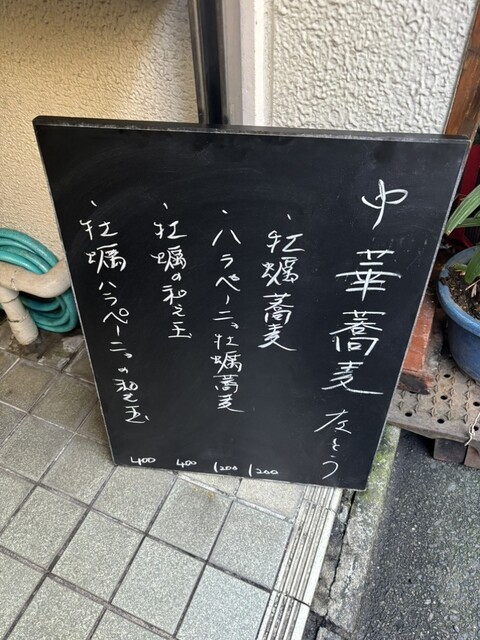 中華蕎麦 左とう
・牡蠣蕎麦 1200
・ハラペーニョ牡蠣蕎麦 1200
・牡蠣の和え玉 400
・牡蠣ハラペーニョの和え玉 400